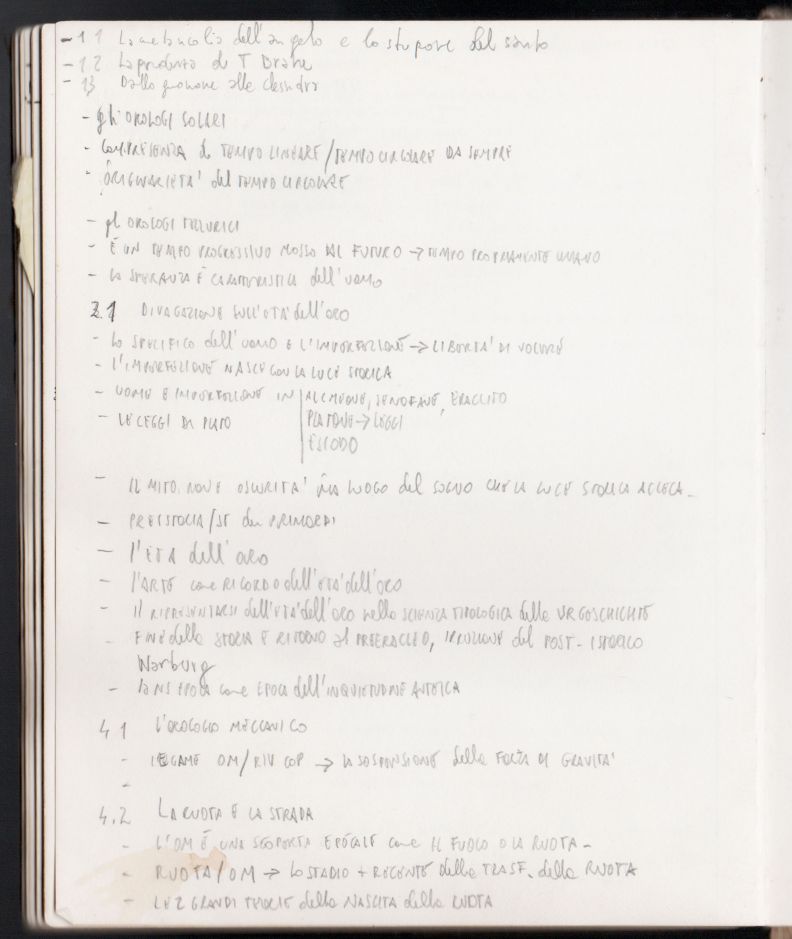 - 1 1 La melancolia dell'angelo e lo stupore del santo
- 1 2 La prudenza di T Brahe
- 13 Dallo gnomone alla clessidra
- gli OROLOGI SOLARI
- COMPRESENZA di TEMPO LINEARE/TEMPO CIRCOLARE DA SEMPRE
- ORIGINARIETA' del TEMPO CIRCOLARE
- gl OROLOGI TELLURICI
- È UN TEMPO PROGRESSIVO MOSSO DAL FUTURO → TEMPO PROPRIAMENTE UMANO
- LA SPERANZA È CARATTERISTICA dell'UOMO
3.1 DIVAGAZIONE SULL'ETA' dell'ORO
- Lo SPECIFICO dell'UOMO E L'IMPERFEZIONE → LIBERTA' DI VOLERE
- L'IMPERFEZIONE NASCE CON LA LUCE STORICA
- UOMO E IMPERFEZIONE IN | ALCMEONE, SENOFANE, ERACLITO
- LE LEGGI DI PLATO | PLATONE → LEGGI
ESIODO
- IL MITO NON È OSCURITA' MA LUOGO del SOGNO CHE LA LUCE STORICA ACCECA -
- PREISTORIA/ST dei PRIMORDI
- l'ETA dell'oro
- l'ARTE come RICORDO dell'ETA' dell'ORO
- Il RIPRESENTARSI dell'ETA' dell'ORO nella SCIENZA TIPOLOGICA della URGESCHICHTE
- FINE della STORIA E RITORNO al PREERACLEO, IRRUZIONE del POST-ISTORICO
Warburg
- la NS EPOCA come EPOCA dell'INQUIETUDINE ANTEICA
4.1 L'OROLOGIO MECCANICO
- LEGAME OM/RIV COP → LA SOSPENSIONE della FORZA DI GRAVITA'
-
4.2 LA RUOTA E LA STRADA
- L'OM È UNA SCOPERTA EPOCALE come IL FUOCO O LA RUOTA -
- RUOTA/OM → Lo STADIO + RECENTE della TRASF. della RUOTA
- LE 2 GRANDI TEORIE della NASCITA della RUOTA